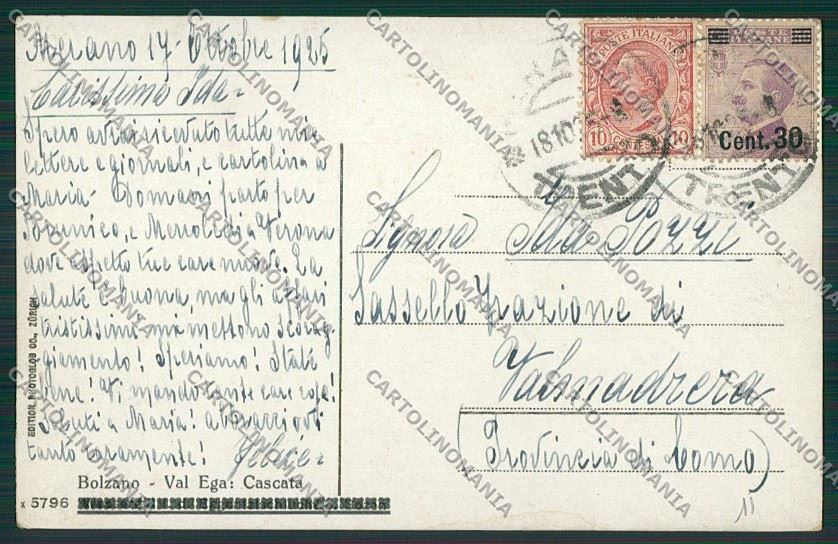 Merano 17 - Ottobre 1925
Carissima Ida -
Spero avrai ricevuto tutte mie
lettere e giornali, e cartolina a
Maria - Domani parto per
Brunico, e Mercoledì a Verona
dove aspetto tue care nuove. La
salute è buona, ma gli affari
tristissimi mi mettono scorag
giamento! Speriamo! State
bene! Vi mando tante care cose!
Saluti a Maria! abbracciovi
tanto caramente! Felice -
Bolzano - Val Ega: Cascata
x 5796
EDITION PHOTOGLOB CO., ZÜRICH
POSTE ITALIANE
10 CENT 10
POSTE
ITALIANE
Cent. 30
18 10 25
TRENTO
TRENTO
Signora Ida Pozzi
Sassello frazione di
Valmadrera
(Provincia di Como)
11
CARTOLINOMANIA